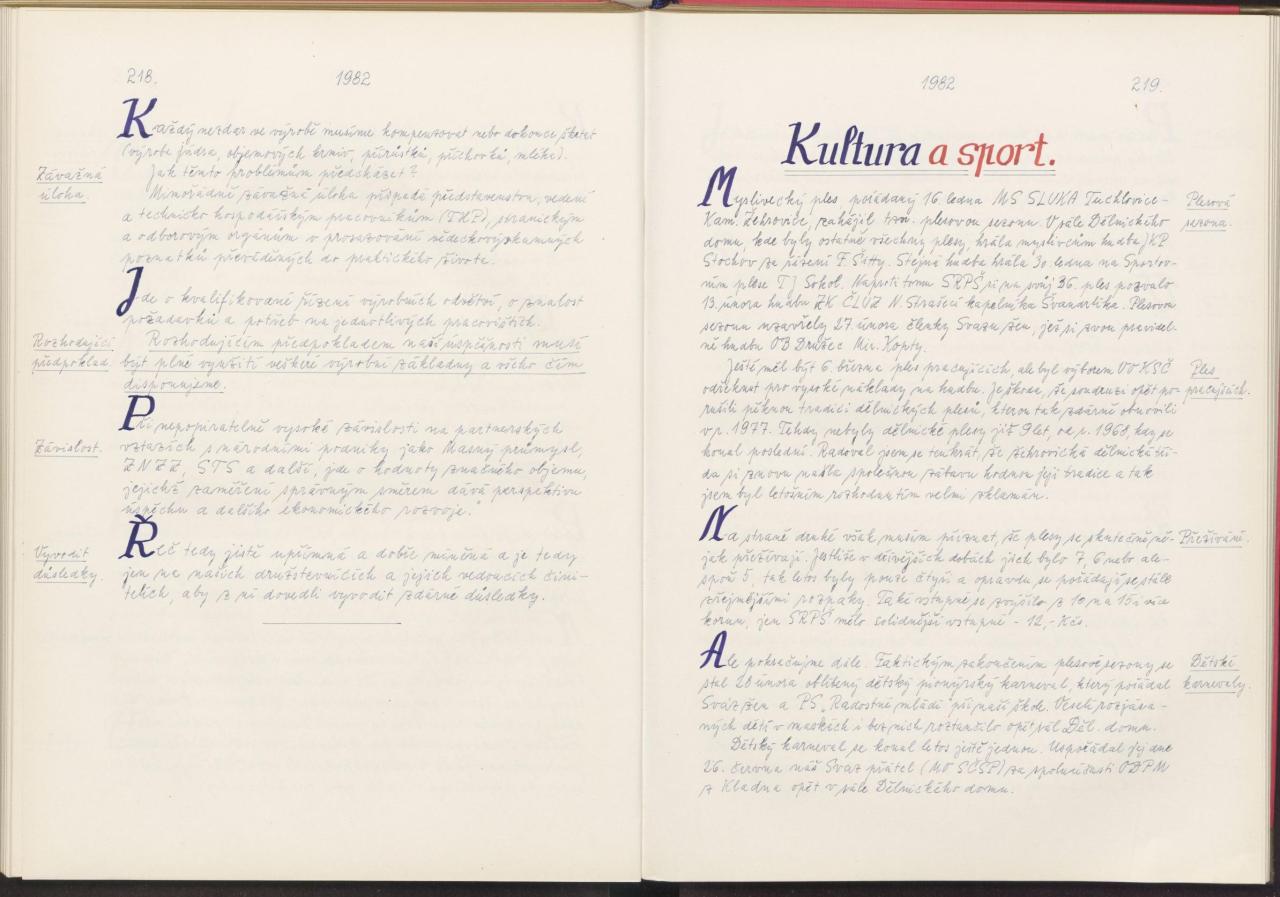 218.
1982
Každý nezdar ve výrobě musíme kompenzovat nebo dokonce škrtat
(výroba jádra, objemových krmiv, přírůstků, příchovků, mléka).
Jak těmto problémům předcházet?
Závažná
úloha.
Mimořádně závažná úloha připadá představenstvu, vedení
a technicko hospodářským pracovníkům (THP), stranickým
a odborovým orgánům v prosazování vědeckovýzkumných
poznatků převáděných do praktického života.
Jde o kvalifikované řízení výrobních odvětví, o znalost
požadavků a potřeb na jednotlivých pracovištích.
Rozhodující
předpoklad.
Rozhodujícím předpokladem naší úspěšnosti musí
být plné využití veškeré výrobní základny a všeho čím
disponujeme.
Při nepopiratelně vysoké závislosti na partnerských
Závislost.
vztazích s národními podniky jako Masný průmysl,
ZNZZ, STS a další, jde o hodnoty značného objemu,
jejichž zaměření správným směrem dává perspektivu
úspěchu a dalšího ekonomického rozvoje."
Vyvodit
důsledky.
Řeč tedy jistě upřímná a dobře míněná a je tedy
jen na našich družstevnících a jejich vedoucích čini-
telích, aby z ní dovedli vyvodit zdárné důsledky.
1982
219.
Kultura a sport.
Myslivecký ples, pořádaný 16. ledna MS SLUKA Tuchlovice-
Plesová
sezona.
Kam. Žehrovice, zahájil tzv. plesovou sezonu. V sále Dělnického
domu, kde byly ostatně všechny plesy, hrála myslivcům hudba JKP
Stochov za řízení F. Šitty. Stejná hudba hrála 30. ledna na Sportov-
ním plese TJ Sokol. Naproti tomu SRPŠ si na svůj 36. ples pozvalo
13. února hudbu ZK ČLUZ N. Strašecí kapelníka Švandrlíka. Plesovou
sezonu uzavřely 27. února členky Svazu žen, jež si zvou pravidel-
ně hudbu OB Družec Mir. Kopty.
Ještě měl být 6. března ples pracujících, ale byl výborem VO KSČ
Ples
pracujících.
odřeknut pro vysoké náklady na hudbu. Je škoda, že soudruzi opět po-
rušili pěknou tradici dělnických plesů, kterou tak zdárně obnovili
v r. 1977. Tehdy nebyly dělnické plesy již 9 let, od r. 1968, kdy se
konal poslední. Radoval jsem se tenkrát, že žehrovická dělnická tří-
da si znovu našla společnou zábavu hodnou její tradice a tak
jsem byl letošním rozhodnutím velmi zklamán.
Na straně druhé však musím přiznat, že plesy se skutečně ně-
Přežívání.
jak přežívají. Jestliže v dřívějších dobách jich bylo 7, 6 nebo ale-
spoň 5, tak letos byly pouze čtyři a opravdu se pořádají se stále
zřejmějšími rozpaky. Také vstupné se zvýšilo z 10 na 15 i více
korun, jen SRPŠ mělo solidnější vstupné - 12,- Kčs.
Ale pokračujme dále. Faktickým zakončením plesové sezony se
Dětské
karnevaly.
stal 28 února oblíbený dětský pionýrský karneval, který pořádal
Svaz žen a PS „Radostné mládí" při naší škole. Veselí rozjása-
ných dětí v maskách i bez nich roztančilo opět sál Děl. domu.
Dětský karneval se konal letos ještě jednou. Uspořádal jej dne
26. června náš Svaz přátel (MO SČSP) za spoluúčasti ODPM
z Kladna opět v sále Dělnického domu.